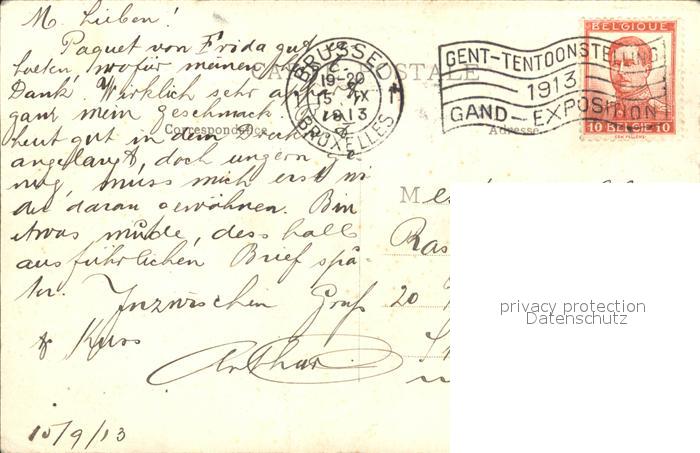 M. Lieben!
Paquet von Frida gut
wofür meinen
Dank. Wirklich sehr
ganz mein Geschmack.
heut gut in dem
angelangt, doch ungern
muss mich erst
daran gewöhnen. Bin
etwas müde, dess halb
ausführlichen Brief spä-
ter. Inzwischen Gruß
& Kuss
Arthur
10/9/13
CARTE POSTALE
Correspondance
Adresse
BRUSSEL
19-20
15 IX
1913
BRUXELLES
GENT-TENTOONSTELLING
1913
GAND-EXPOSITION
BELGIQUE
10 BELGIE 10
M
Ras
20
privacy protection
Datenschutz